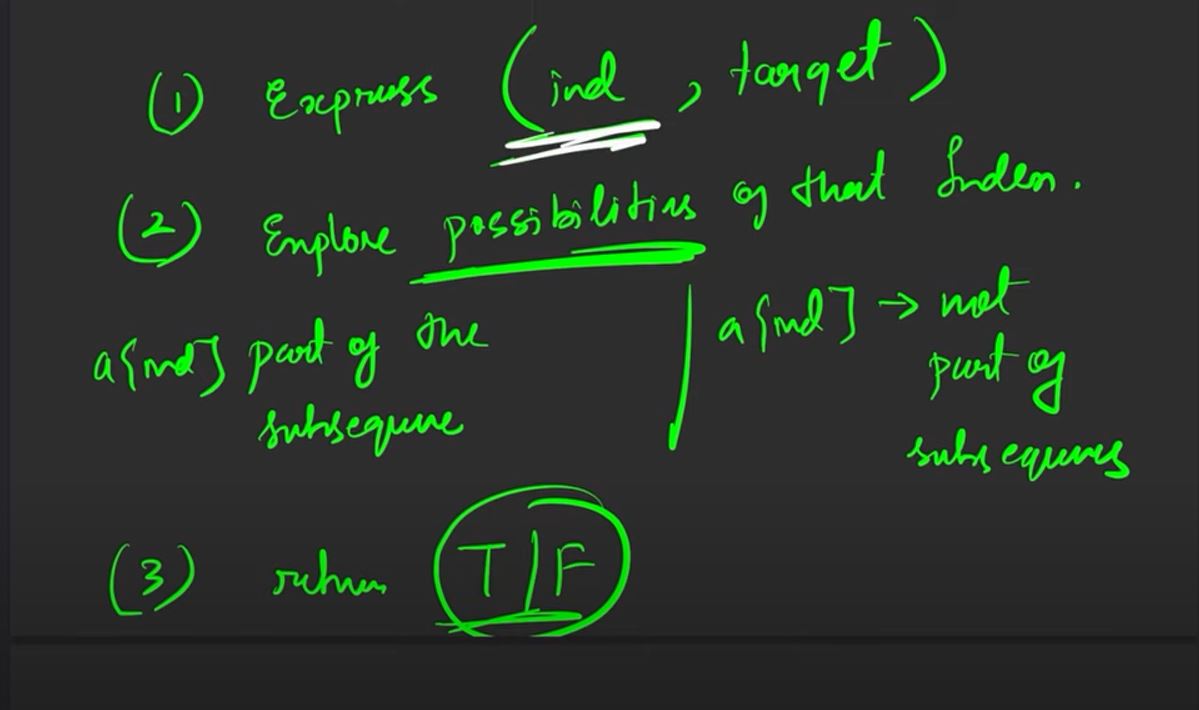 (1) Express (ind, target)
(2) Explore possibilities of that Index.
a[ind] part of the subsequence
a[ind] → not part of subsequences
(3) return (T/F)